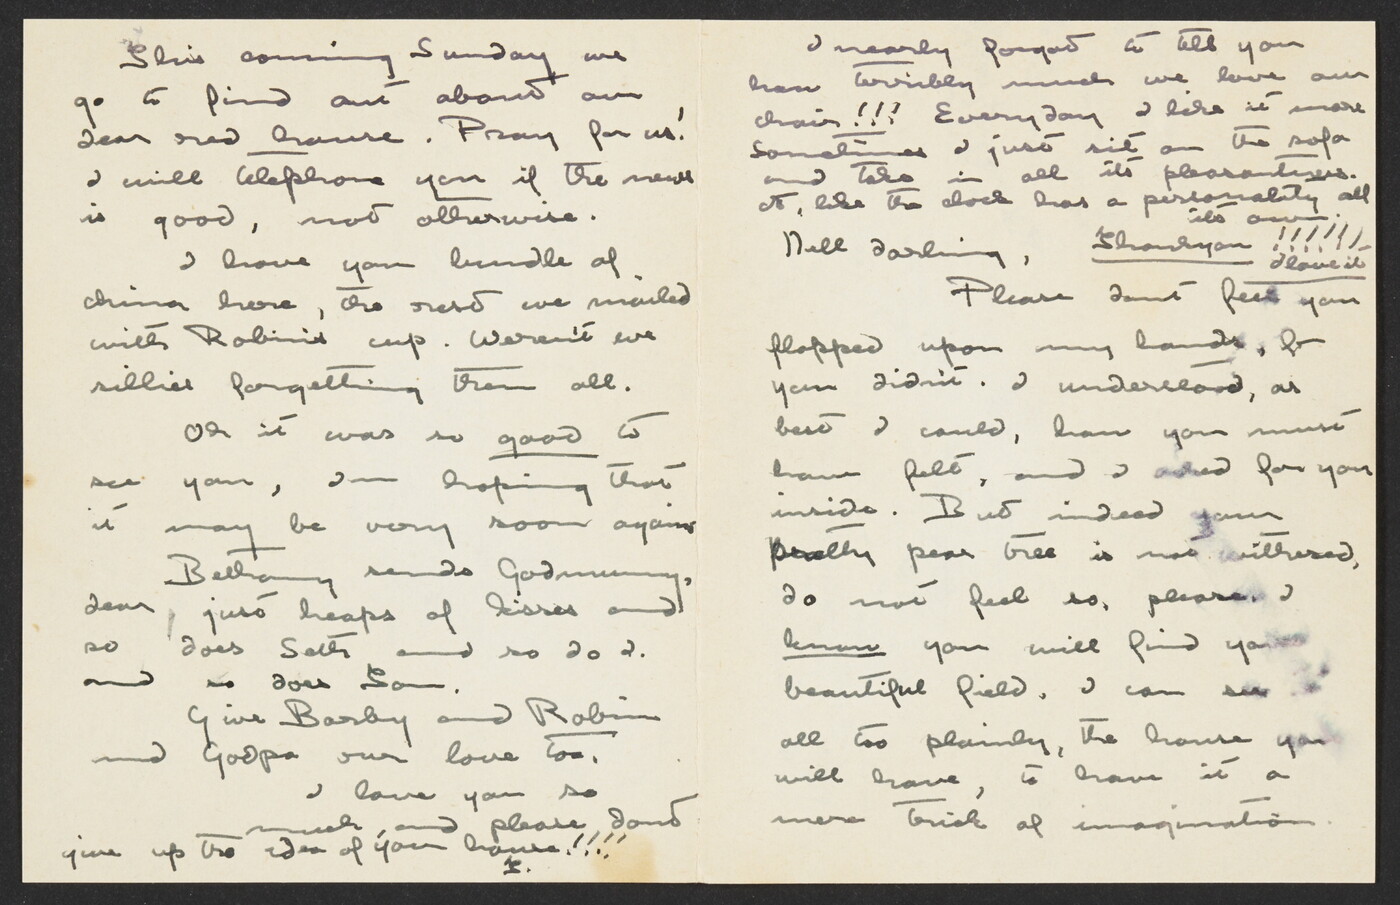 This coming Sunday we
go to find out about our
dear red house. Pray for us!
I will telephone you if the news
is good, not otherwise.
I have your bundle of
china here, the rest we mailed
with Robin's cup. Weren't we
sillies forgetting them all.
Oh it was so good to
see you, I'm hoping that
it may be very soon again
Bethany sends Godmummy,
dear, just heaps of kisses and
so does Seth and so do I.
and so does Tom.
Give Barby and Robin
and Godpa our love too.
I love you so
much, and please dont
give up the idea of your house!!!!
T.
I nearly forgot to tell you
how terribly much we love our
chair!!! Everyday I like it more
Sometimes I just sit on the sofa
and take in all its pleasantness.
It, like the clock has a personality all
its own.
Nell darling, Thankyou !!!!!!
I love it
Please dont feel you
flopped upon my hands, for
you didn't. I understood, as
best I could, how you must
have felt, and I for you
inside. But indeed your
pretty pear tree is not withered,
do not feel so, please. I
know you will find your
beautiful field. I can see
all too plainly, the house you
will have, to have it a
mere trick of imagination.